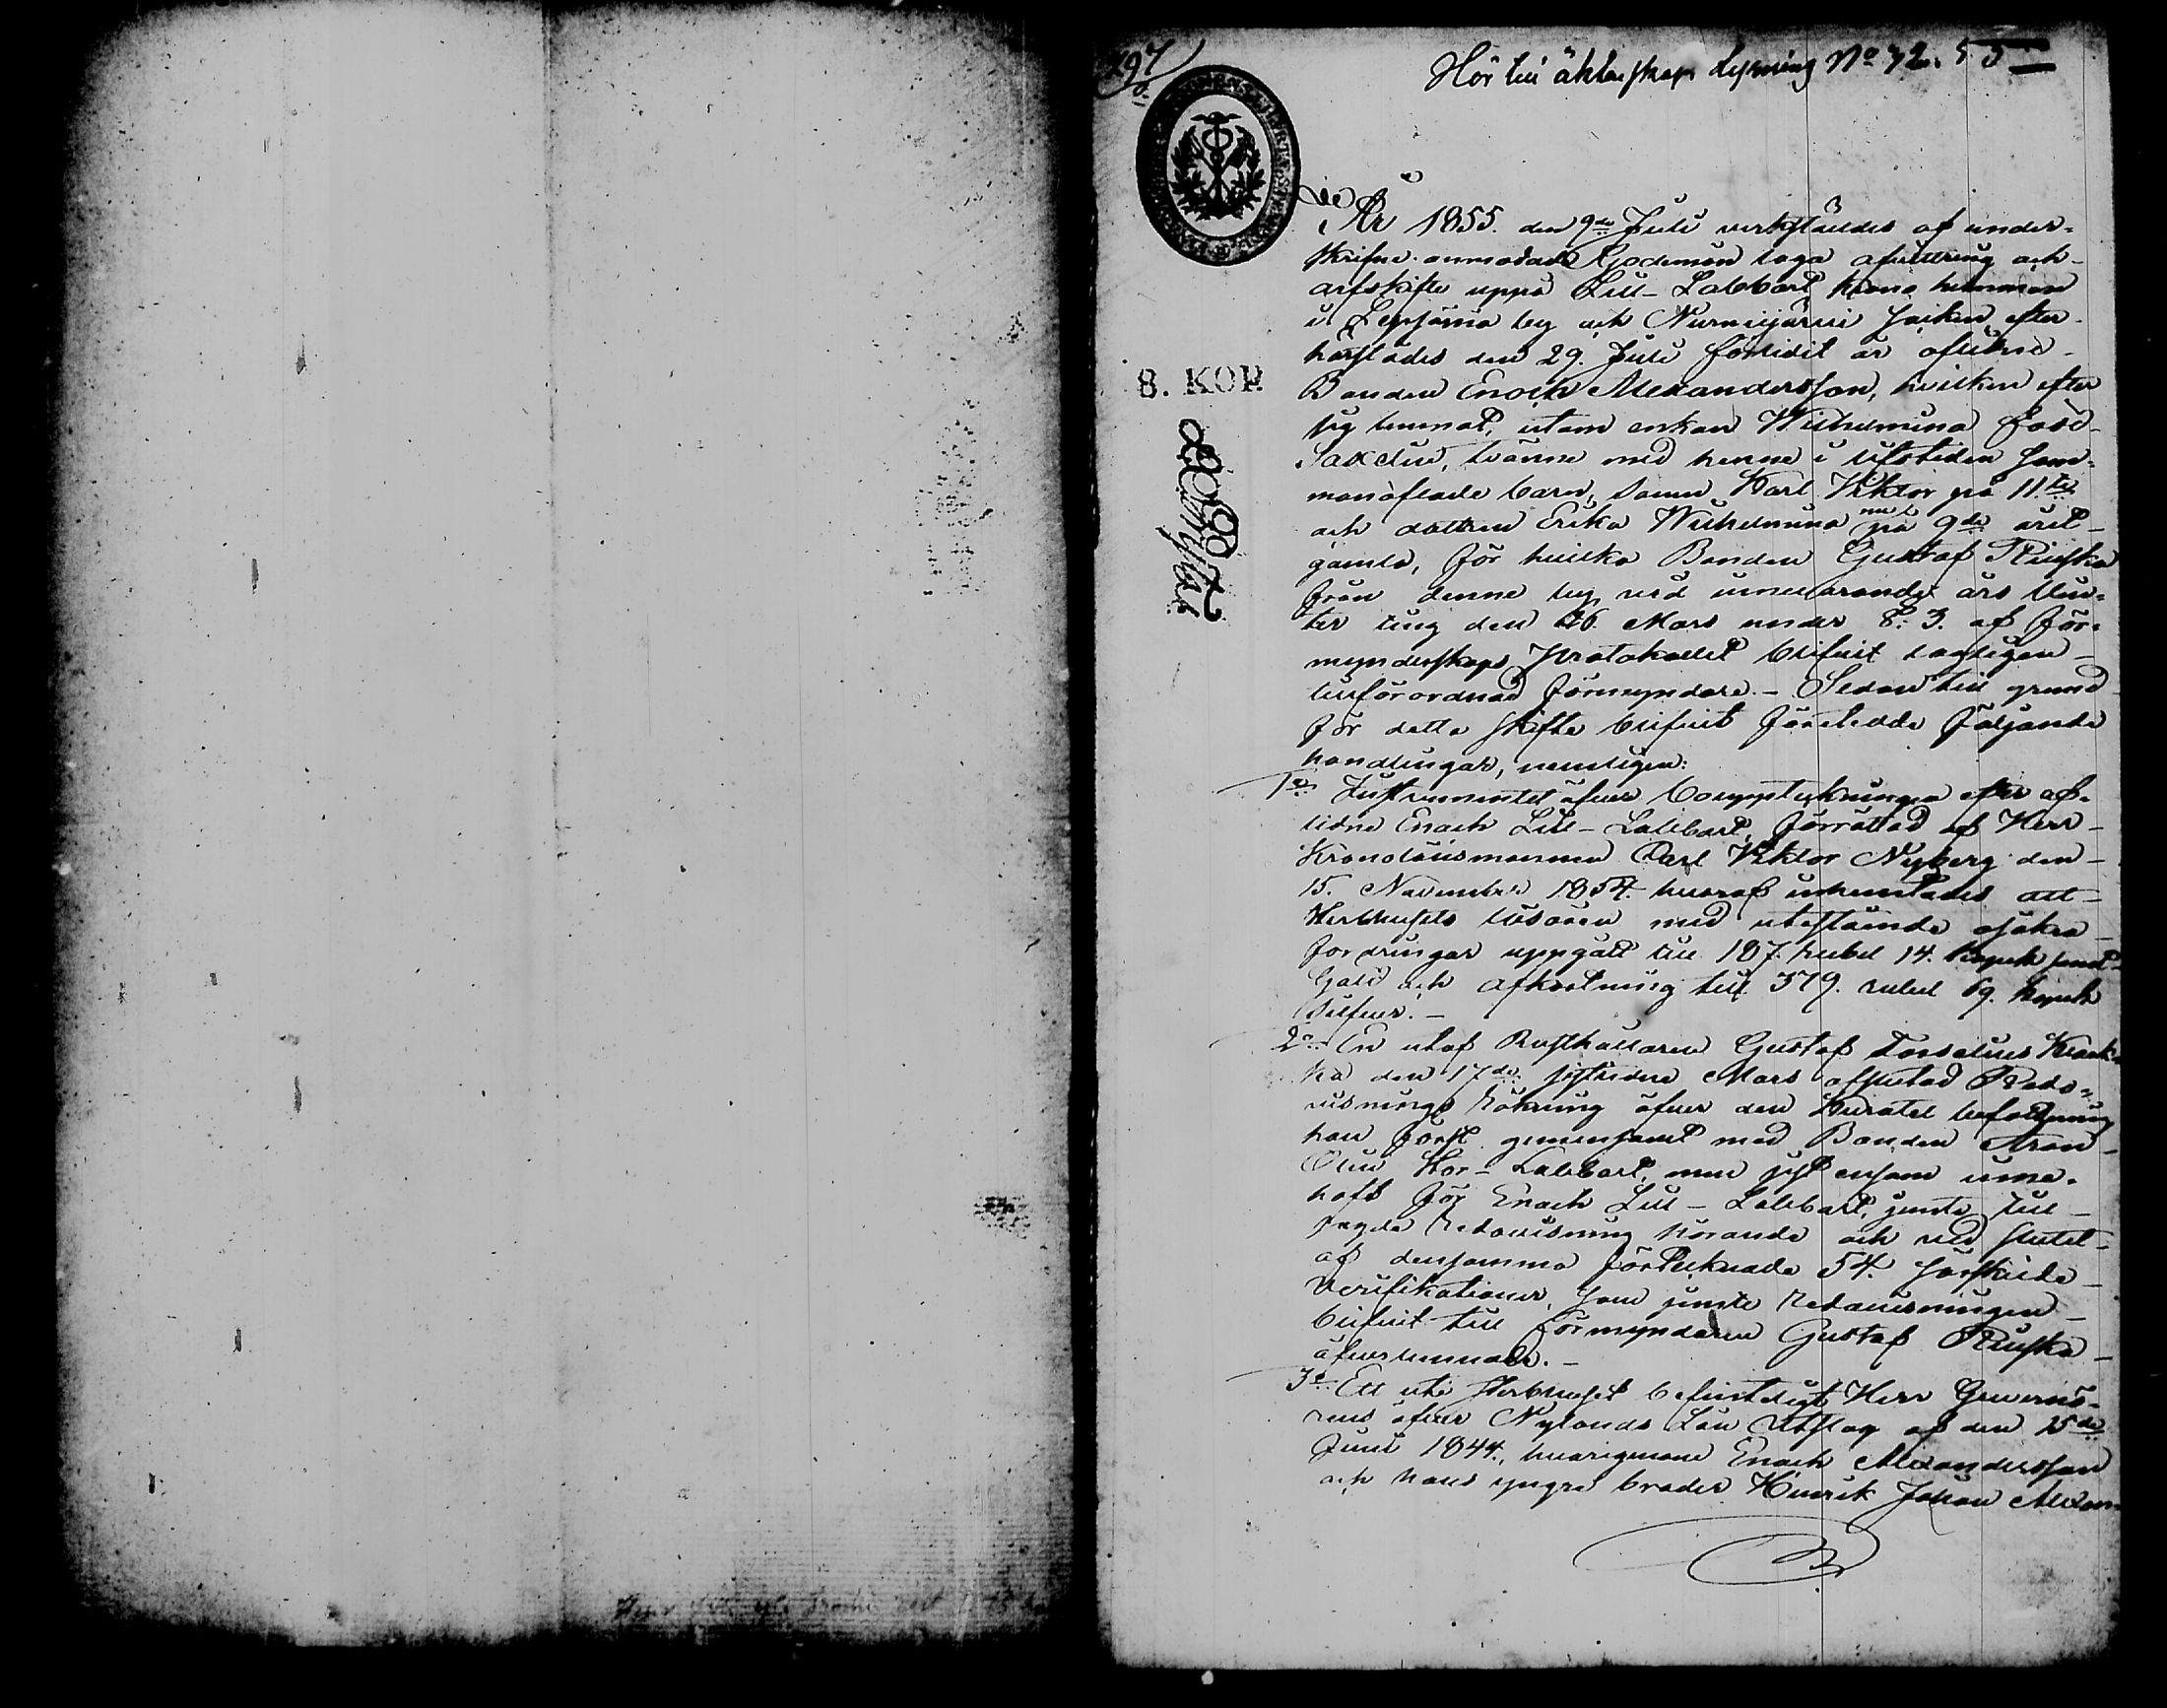 297
Hör till äktenskaps lysning No 72. 55
8. KOP.
År 1855. den 9de Juli verkställdes af under-
skrifne anmodade Godemän laga afvittring och
arfskifte uppå Lill-Labbart krono hemman
i Lepsämä by och Nurmijärvi Socken efter
härstädes den 29. Juli förlidit år aflidne
Bonden Enoch Alexandersson, hvilken efter
sig lemnat, utom enkan Wilhelmina född
Saxelin, tvänne med henne i lifstiden sam-
manaflade barn, sonen Karl Viktor på 11te
och dottren Erika Wilhelmina på 9de året
gamla, för hvilka Bonden Gustaf Piuska
från denne by, vid innevarande års Vin-
ter ting den 26. Mars under §. 3. af För-
mynderskaps Protokollet blifvit lagligen
tillförordnad förmyndare. - Sedan till grund
för detta skifte blifvit företedde följande
handlingar, nemligen:
1o Instrumentet öfver bouppteckningen efter af-
lidne Enoch Lill-Labbart, förrättad af Herr
Kronolänsmannen Carl Viktor Nyberg den
15. November 1854. hvaraf inhemtades att
Sterbhusets lösören med utestående osäkra
fordringar uppgått till 187. rubel 14. kopek samt
Gäld och afkortning till 379. rubel 69. kopek
Silfver. -
2o En utaf Rusthållaren Gustaf
den 17de sistlidne Mars afslutad Redo-
visnings räkning öfver den Kuratel befattning
han först gemensamt med Bonden Aron
Olin Stor-Labbart, men sist ensam inne-
haft för Enoch Lill-Labbart, jemte till
sagde Redovisning hörande och vid slutet
af densamma förtecknade 54. särskilde
Verifikationer, som jemte Redovisningen
blifvit till förmyndaren Gustaf Piuska
öfverlemnade. -
3o Ett uti Sterbhuset befintligt Herr Guvernö-
rens öfver Nylands Län Utslag af den 15de
Juni 1844., hvarigenom Enoch Alexandersson
och hans yngre broder Henrik Johan Alexan